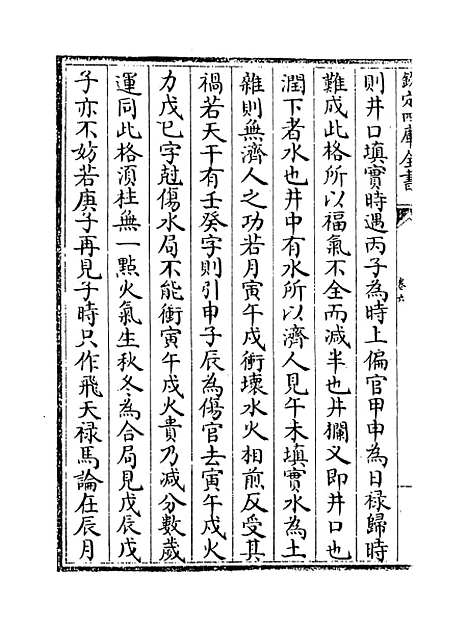 欽定四庫全書
卷六
則井口填實時遇丙子為時上偏官甲申為日禄歸時
難成此格所以福氣不全而减半也井欄叉即井口也
潤下者水也井中有水所以濟人見午未填實水為土
雜則無濟人之功若月寅午戌衝壞水火相煎反受其
禍若天干有壬癸字則引申子辰為傷官去寅午戌火
力戊巳字尅傷水局不能衝寅午戌火貴乃减分數歲
運同此格湏柱無一點火氣生秋冬為合局見戊辰戊
子亦不妨若庚子再見子時只作飛天禄馬論在辰月